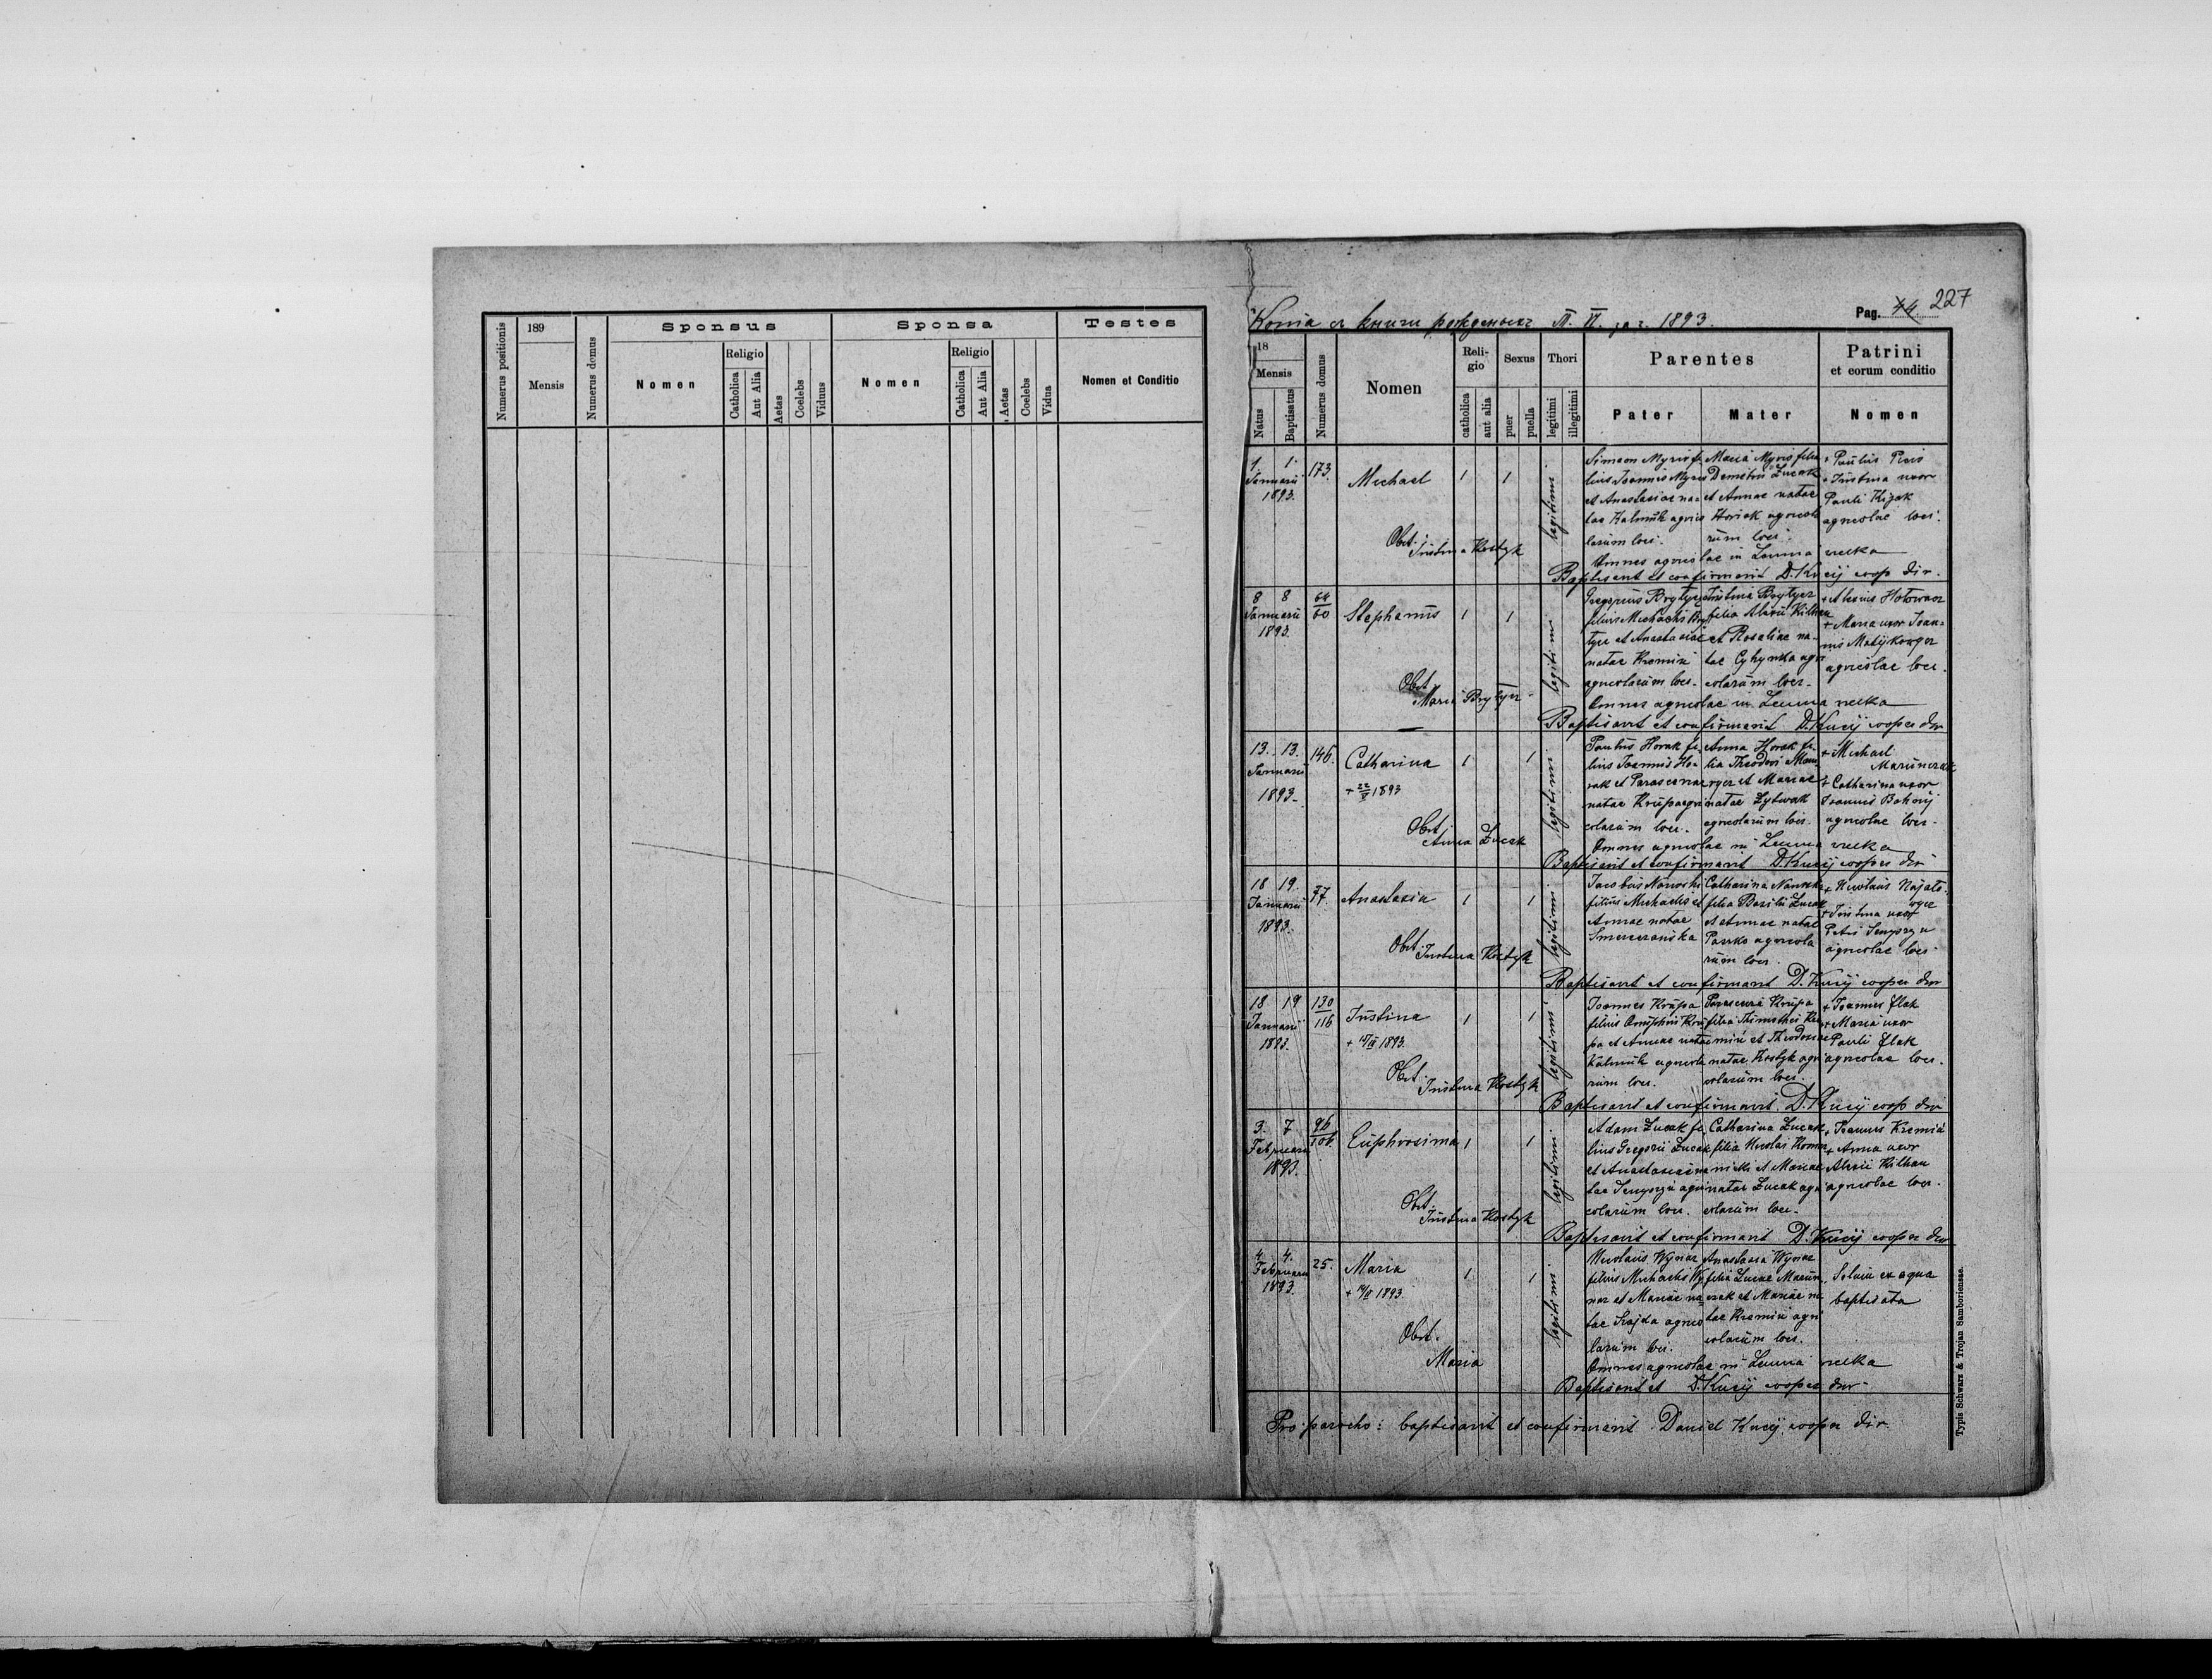 Numerus positionis
189
Mensis
Numerus domus
Sponsus
Nomen
Religio
Catholica
Aut Alia
Aetas
Coelebs
Viduus
Sponsa
Nomen
Religio
Catholica
Aut Alia
Aetas
Coelebs
Vidua
Testes
Nomen et Conditio
Копія с книги рожденных за г. 1893.
Pag. 227
18
Mensis
Natus
Baptisatus
Numerus domus
Nomen
Reli-
gio
catholica
aut alia
Sexus
puer
puella
Thori
legitimi
illegitimi
Parentes
Pater
Mater
Patrini
et eorum conditio
Nomen
1. 1.
Januarii
1893.
173.
Michael
1
1
legitimi
Obst.
Justina Kostyk
Simeon Myris fi-
lius Joannis Myris
et Anastasiae na-
tae Kalmuk agrico
larum loci.
Maria Myris filia
Demetrii Łucak
et Annae natae
Horiak agricola
rum loci.
+ Paulus
+ Justina uxor
Pauli Kijak
agricolae loci.
Omnes agricolae in Lenina velka
Baptisavit et confirmavit D. Kucij coop. dir.
8 8
Januarii
1893.
64
60
Stephanus
1
1
legitimi
Obst.
Maria Brytyer
Gregorius Brytyer
filius Michaelis Bry
tyer et Anastasiae
natae Kremin
agricolarum loci.
Justina Brytyer
filia Alexii Kilhan
et Rosaliae na-
tae Cyhynka agri
colarum loci.
+ Alexius Hotowacz
+ Maria uxor Joan-
nis
agricolae loci.
Omnes agricolae in Lenina velka
Baptisavit et confirmavit D. Kucij cooper. dir
13. 13.
Januarii
1893.
146.
Catharina
+ 1893
1
1
legitimi
Obst.
Anna Łucak
Paulus Horak fi-
lius Joannis Ho-
rak et Parascevae
natae Krupa agri
colarum loci.
Anna Horak fi-
lia Theodori
et Mariae
natae Łytwak
agricolarum loci.
+ Michael
Marunczak
+ Catharina uxor
Joannis Bohonij
agricolae loci.
Omnes agricolae in Lenina velka
Baptisavit et confirmavit D. Kucij cooper dir
18 19.
Januarii
1893.
77.
Anastasia
1
1
legitimi
Obst.
Justina Kostyk
Jacobus Nanowski
filius Michaelis et
Annae natae
Catharina Nanowska
filia Basilii Łucak
et Annae natae
Pasrko agricola
rum loci.
+ Nicolaus
+ Justina uxor
Petri Senyszyn
agricolae loci.
Baptisavit et confirmavit D. Kucij cooper dir
18 19
Januarii
1893.
130
116
Justina
+ 1893.
1
1
legitimi
Obst.
Justina Kostyk
Joannes Krupa
filius Onuphrii Kru
pa et Annae natae
Kalmuk agricola
rum loci.
Parasceva Krupa
filia Thimothei Kre
min et Theodosiae
natae Kostyk agri
colarum loci.
+ Joannes Flak
+ Maria uxor
Pauli Flak
agricolae loci.
Baptisavit et confirmavit D. Kucij coop dir
3. 7
Februarii
1893.
96
104
Euphrosima
1
1
legitimi
Obst.
Justina Kostyk
Adam Łucak fi-
lius Gregorii Łucak
et Anastasiae na
tae Senyszyn agri
colarum loci.
Catharina Łucak
filia Nicolai Kom
nicki et Mariae
natae Łucak agri
colarum loci.
+ Joannes Kremin
+ Anna uxor
Alexii Kilhan
agricolae loci.
Baptisavit et confirmavit D. Kucij cooper dir
4 4.
Februarii
1893.
25.
Maria
+ 1893
1
1
legitimi
Obst.
Maria
Nicolaus Wynar
filius Michaelis Wy
nar et Mariae na
tae Szajda agrico
larum loci.
Anastasia Wynar
filia Lucae Marun
czak et Mariae na
tae Kremin agri
colarum loci.
Solum ex aqua
baptisata
Omnes agricolae in Lenina velka
Baptisavit et D. Kucij cooper dir
Pro parocho: baptisavit et confirmavit Daniel Kucij cooper dir.
Typis Schwarz & Trojan Samboriensae.